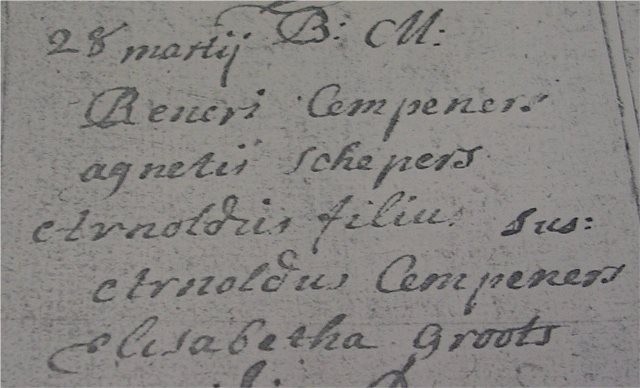 28 martij B: M:
Reneri Cempeners
agnetis schepers
Arnoldus filius sus:
Arnoldus Cempeners
Elisabetha groots